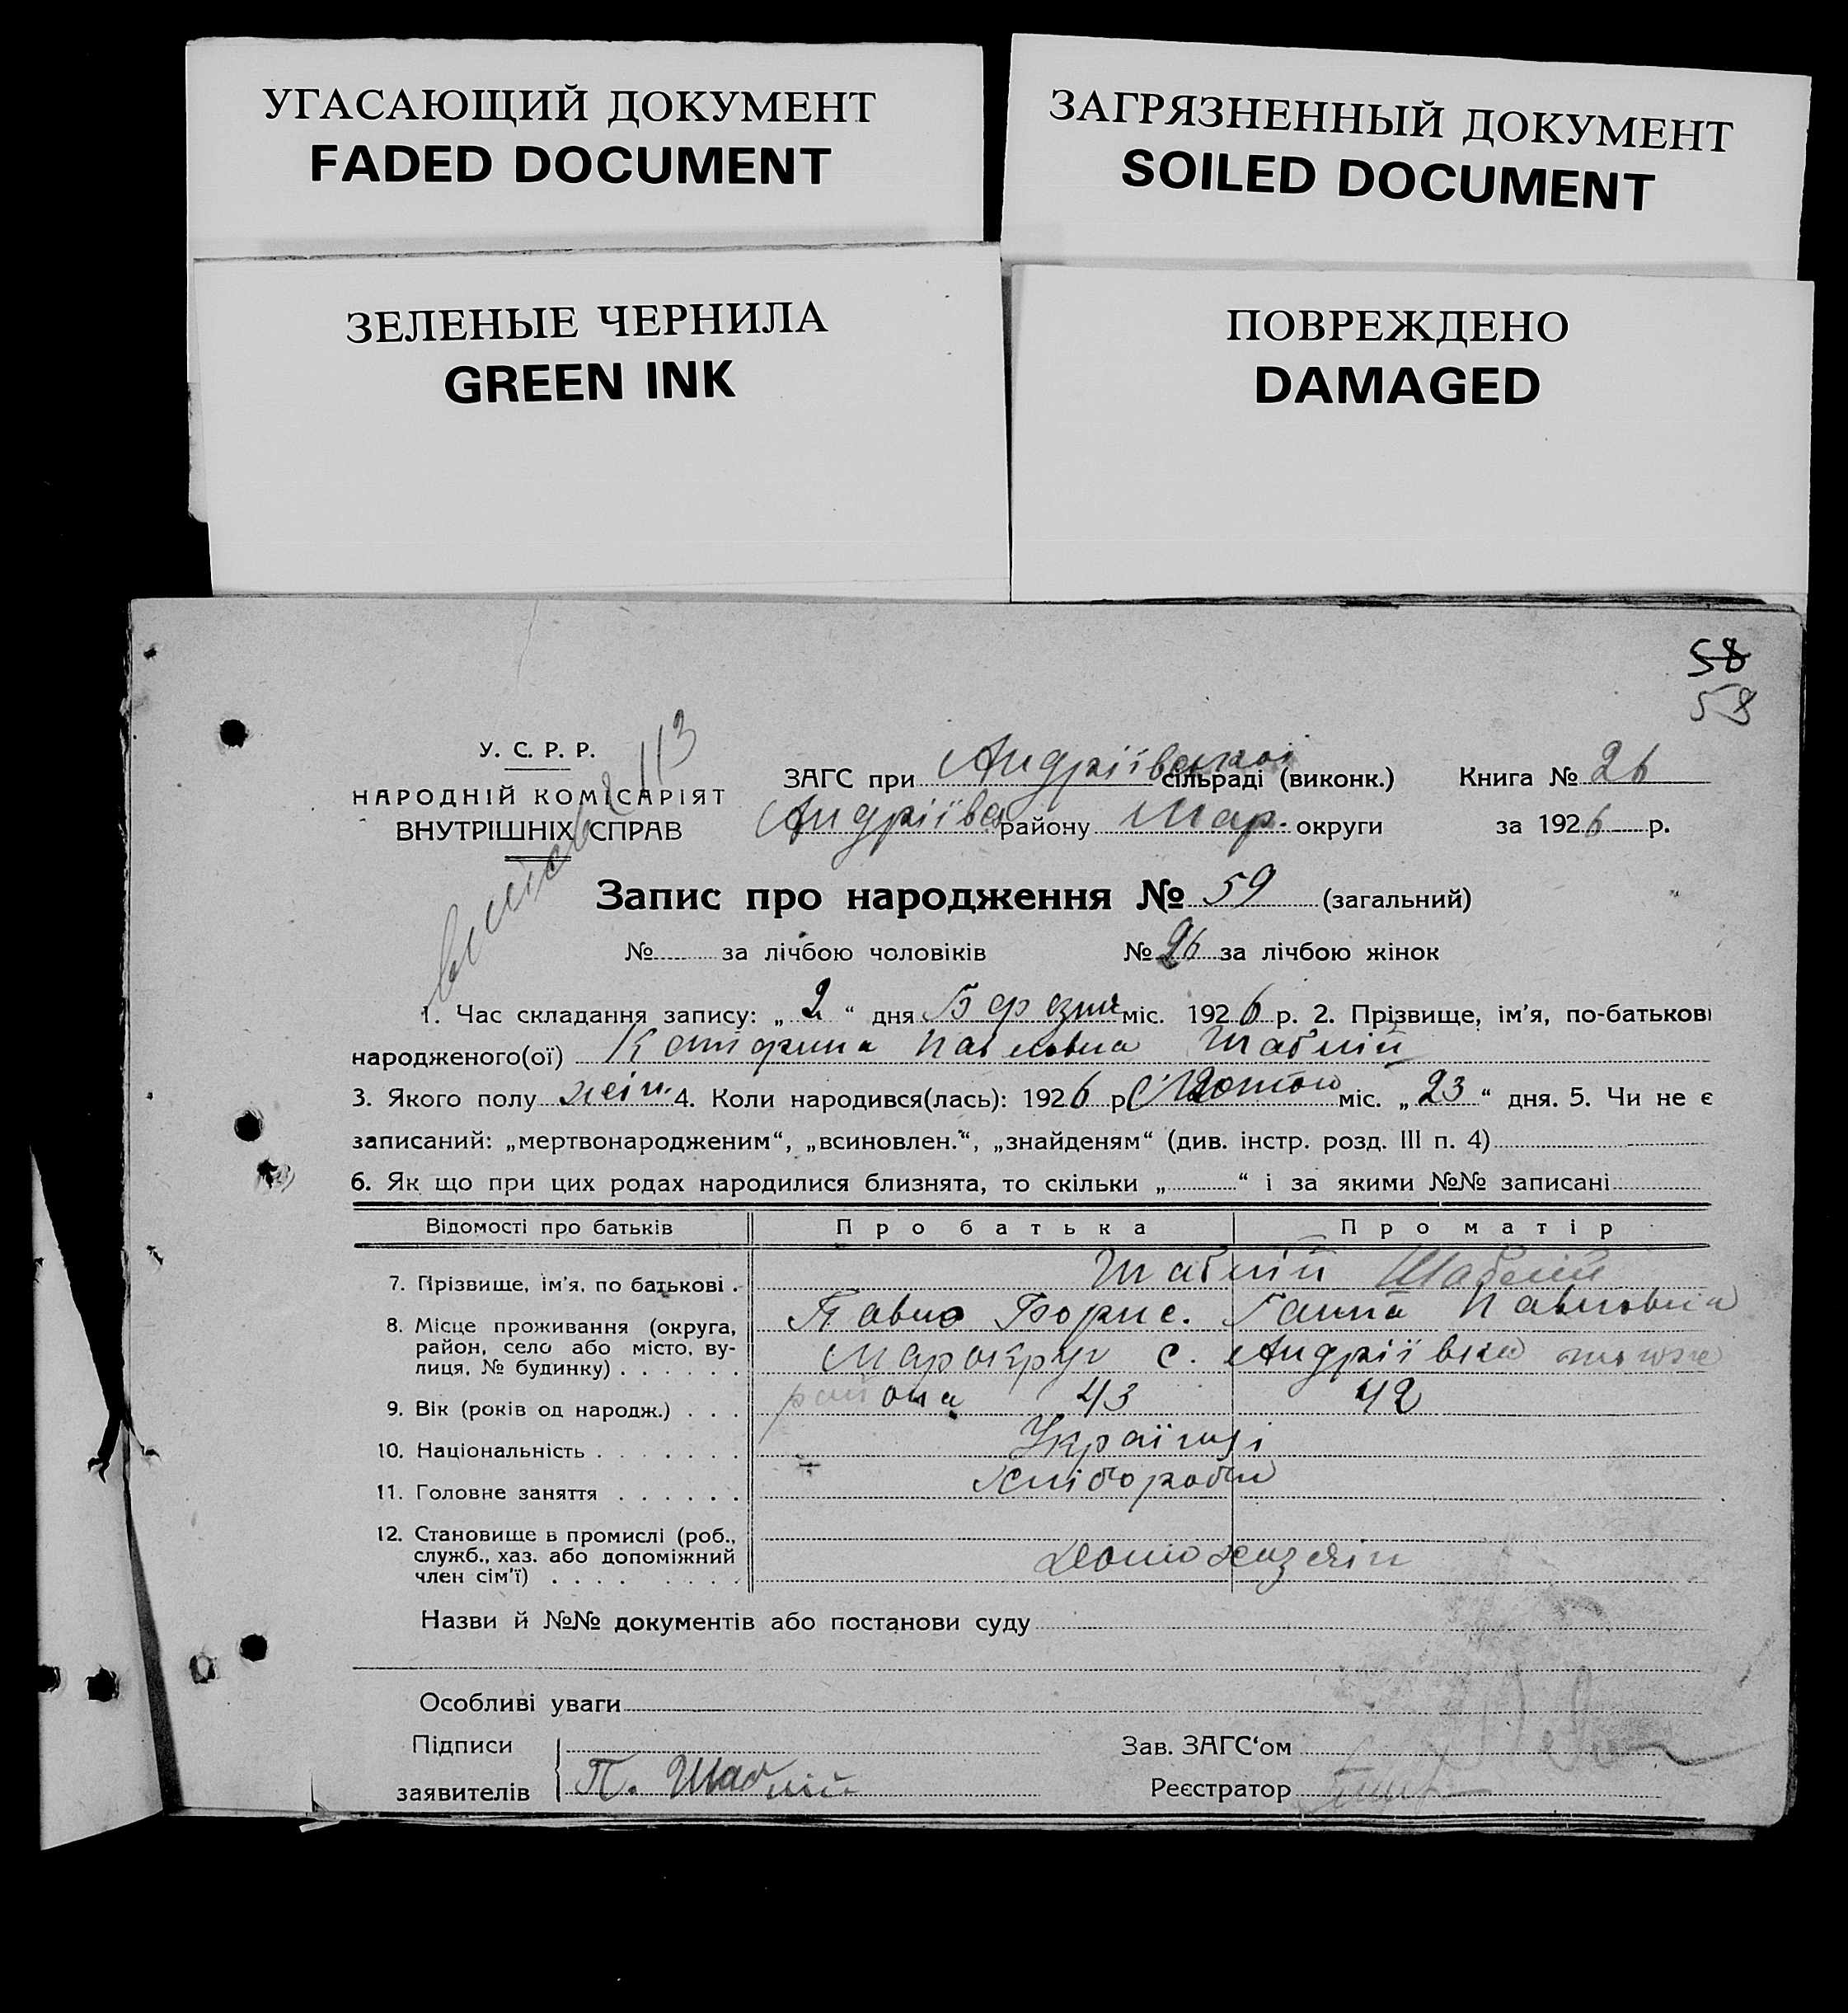 УГАСАЮЩИЙ ДОКУМЕНТ
FADED DOCUMENT
ЗАГРЯЗНЕННЫЙ ДОКУМЕНТ
SOILED DOCUMENT
ЗЕЛЕНЫЕ ЧЕРНИЛА
GREEN INK
ПОВРЕЖДЕНО
DAMAGED
58
58
У. С. Р. Р.
НАРОДНІЙ КОМІСАРІЯТ
ВНУТРІШНІХ СПРАВ
113
ЗАГС при Андріївської сільраді (виконк.) Книга № 26
Андріївс району Мар. округи за 1926 р.
Запис про народження № 59 (загальний)
№ за лічбою чоловіків № 26 за лічбою жінок
1. Час складання запису: „ 2 “ дня Березня міс. 1926 р. 2. Прізвище, ім’я, по-батькові
народженого(ої) Катерина Павловна Шаблій
3. Якого полу жін. 4. Коли народився(лась): 1926 р. Лютою міс. „ 23 “ дня. 5. Чи не є
записаний: „мертвонародженим“, „всиновлен.“, „знайденям“ (див. інстр. розд. III п. 4)
6. Як що при цих родах народилися близнята, то скільки „ “ і за якими №№ записані
Відомості про батьків Про батька Про матір
7. Прізвище, ім’я, по батькові . Шаблій Шаблій
Павло Борис. Ганна Павловна
8. Місце проживання (округа,
район, село або місто, ву-
лиця, № будинку) . . . . . . Марокруг с. Андріївка
района
9. Вік (років од народж.) . . . 43 42
10. Національність . . . . . . . Українці
11. Головне заняття . . . . . . Хлібороби
12. Становище в промислі (роб.,
служб., хаз. або допоміжний
член сім’ї) . . . . . . . . Домохазяїн
Назви й №№ документів або постанови суду
Особливі уваги
Підписи
заявителів П. Шаблій
Зав. ЗАГС‘ом
Реєстратор